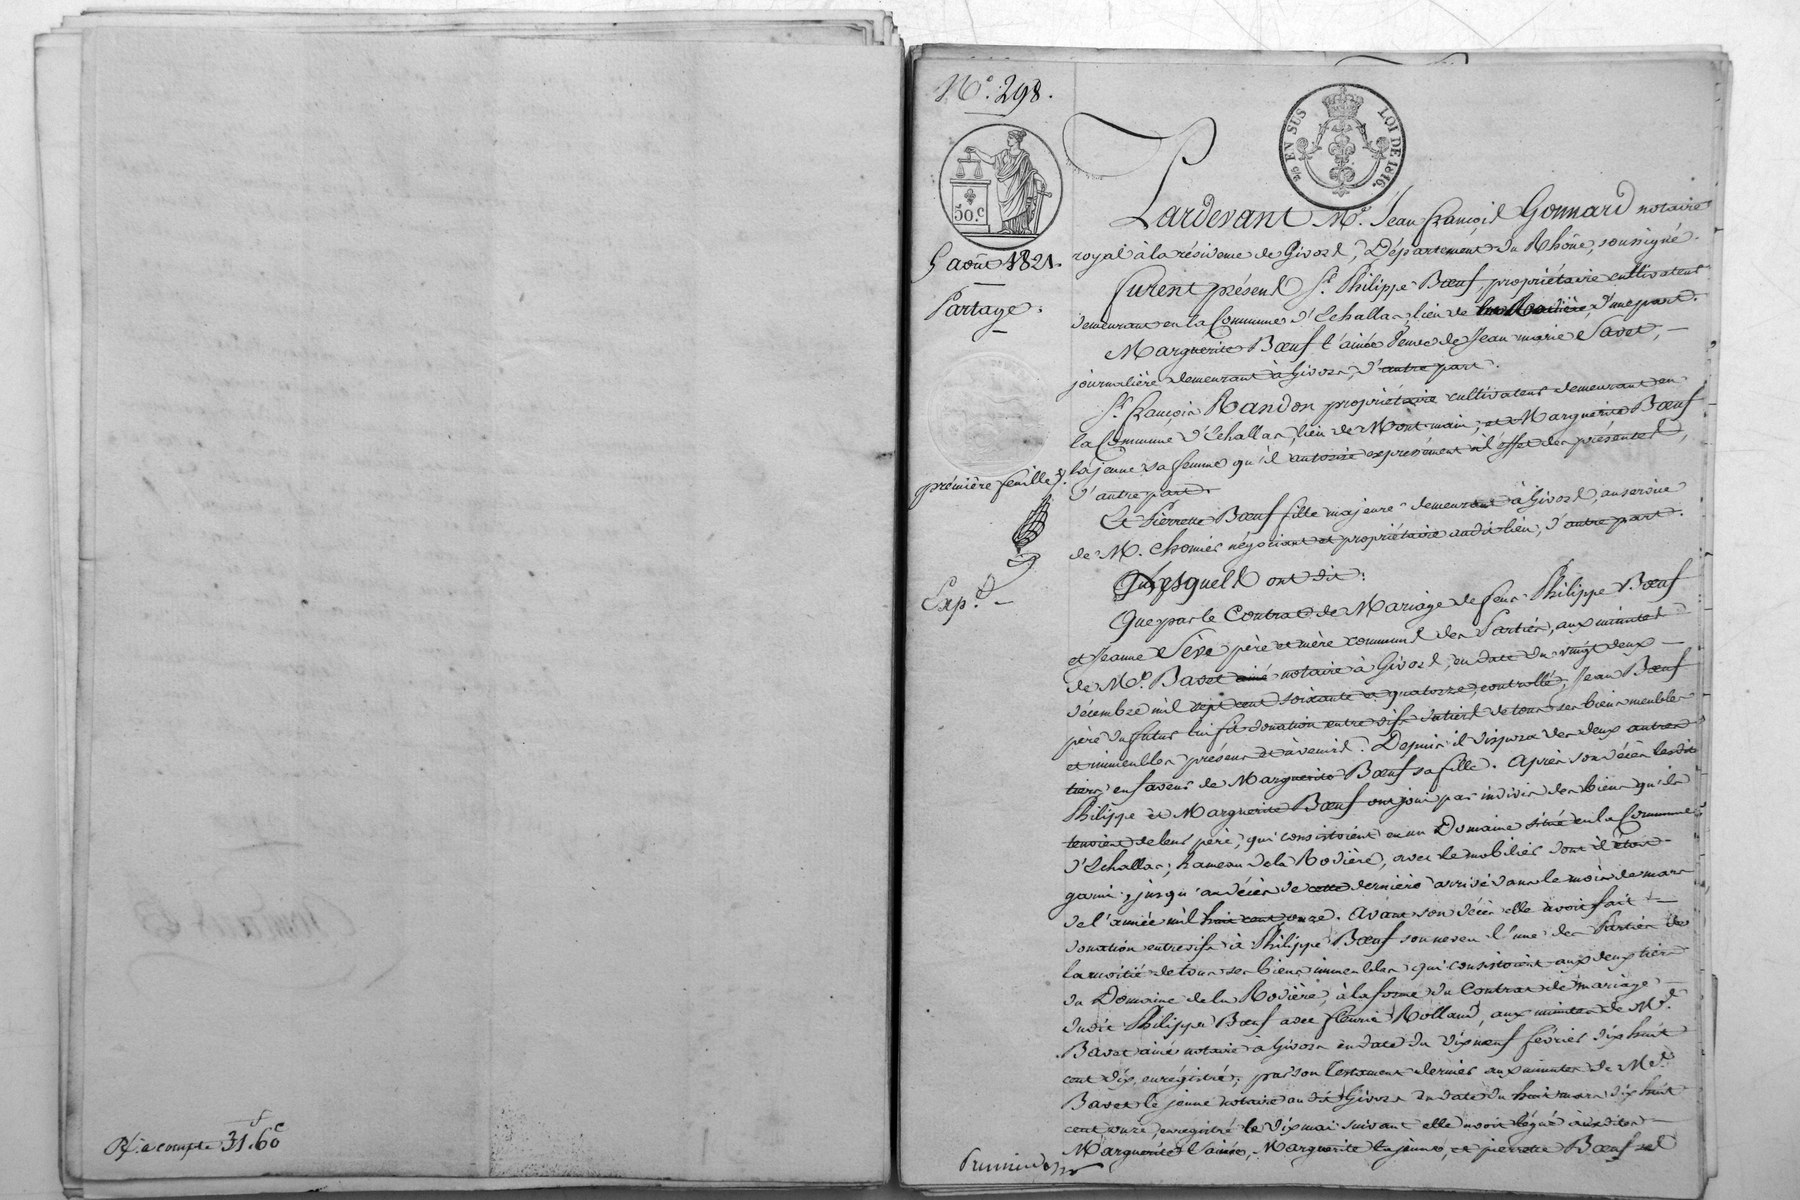 Rf. à compte 31.f 60c
N.o 298.
EN SUS
LOI DE 1816.
50.c
5 août 1821.
Partage.
première feuille
Exp.d
Pardevant M.e Jean François Gonnard notaire
royal à la résidence de Givors, Département du Rhône, soussigné.
Furent présens S.r Philippe Bœuf, propriétaire cultivateur
demeurant en la Commune d'Echallas, lieu de la Rodière, d'une part.
Marguerite Bœuf l'ainée veuve de Jean marie Savet,
journalière demeurant à Givors, d'autre part.
S.r François Randon propriétaire cultivateur demeurant en
la Commune d'Echallas, lieu de Mont-main, et Marguerite Bœuf
la jeune sa femme qu'il autorise expressément à l'effet des présentes,
d'autre part.
Et Pierrette Bœuf fille majeure demeurant à Givors, au service
de M. Chomier négociant et propriétaire audit lieu, d'autre part.
Lesquels ont dit:
Que par le Contrat de Mariage de feus Philippe Bœuf
et Jeanne Sève père et mère communs des Parties, aux minutes
de M.e Bavet ainé notaire à Givors, en date du vingt deux
décembre mil sept cent soixante et quatorze, controllé, Jean Bœuf
père du futur lui fit donation entre vifs du tiers de tous ses biens meubles
et immeubles présens et à venir. Depuis il disposa des deux autres
tiers en faveur de Marguerite Bœuf sa fille. Après son décès lesdits
Philippe et Marguerite Bœuf ont joui par indivis des biens qu'ils
tenoient de leur père, qui consistoient en un Domaine situé en la Commune
d'Echallas, hameau de la Rodière, avec le mobilier dont il étoit
garni, jusqu'au décès de cette dernière arrivé dans le mois de mars
de l'année mil huit cent onze. Avant son décès elle avoit fait
donation entrevifs à Philippe Bœuf son neveu l'une des Parties de
la moitié de tous ses biens immeubles qui consistoient aux deux tiers
du Domaine de la Rodière, à la forme du Contrat de mariage
dudit Philippe Bœuf avec fleurie Rolland, aux minutes de M.e
Bavet ainé notaire à Givors en date du dix neuf février dix huit
cent dix, enrégistré; par son Testament dernier aux minutes de M.e
Bavet le jeune notaire au dit Givors en date du huit mars dix huit
cent onze, enregistré le dix mai suivant elle avoit légué auxdites
Marguerite l'ainée, Marguerite la jeune, et pierrette Bœuf ses